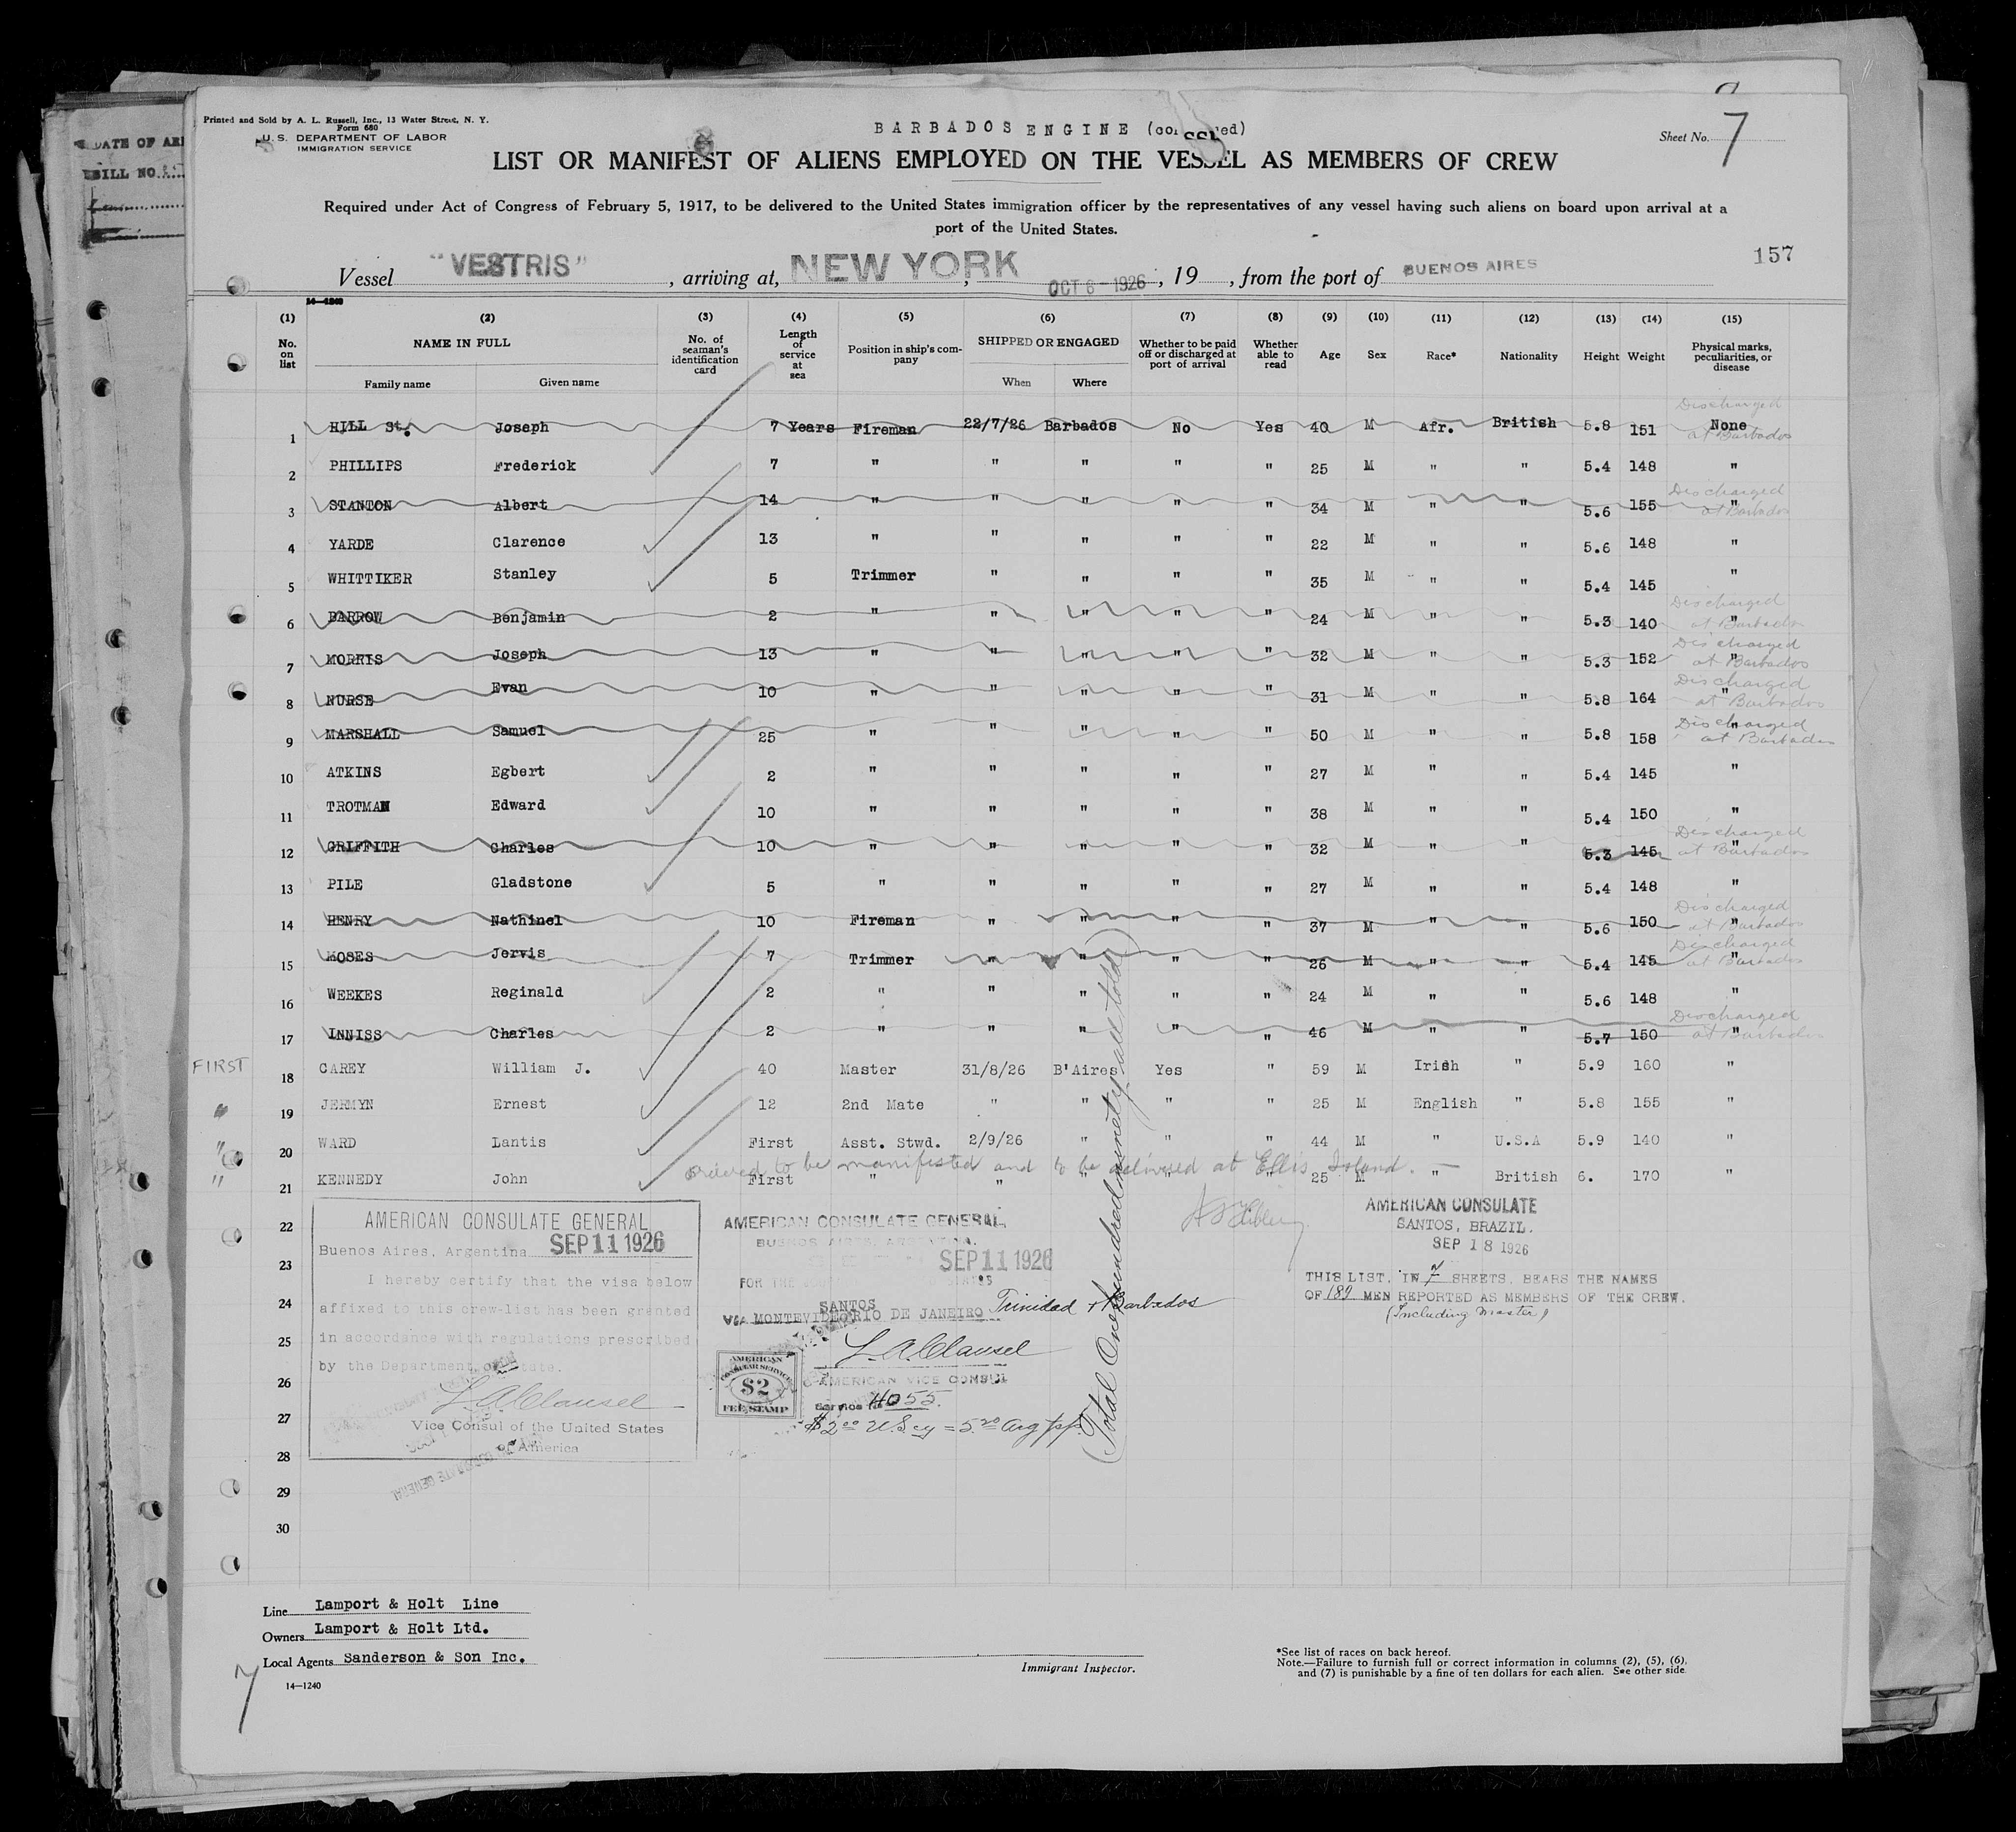 DATE OF AR
BILL NO.
Printed and Sold by A. L. Russell, Inc., 13 Water Street, N. Y.
Form 680
U. S. DEPARTMENT OF LABOR
IMMIGRATION SERVICE
BARBADOS ENGINE
Sheet No. 7
LIST OR MANIFEST OF ALIENS EMPLOYED ON THE VESSEL AS MEMBERS OF CREW
Required under Act of Congress of February 5, 1917, to be delivered to the United States immigration officer by the representatives of any vessel having such aliens on board upon arrival at a
port of the United States.
157
Vessel "VESTRIS", arriving at, NEW YORK, OCT 6 - 1926, 19 , from the port of BUENOS AIRES
14-1240
(1) (2) (3) (4) (5) (6) (7) (8) (9) (10) (11) (12) (13) (14) (15)
No. on list NAME IN FULL No. of seaman's identification card Length of service at sea Position in ship's company SHIPPED OR ENGAGED Whether to be paid off or discharged at port of arrival Whether able to read Age Sex Race* Nationality Height Weight Physical marks, peculiarities, or disease
Family name Given name When Where
1 HILL St. Joseph 7 Years Fireman 22/7/26 Barbados No Yes 40 M Afr. British 5.8 151 None Discharged at Barbados
2 PHILLIPS Frederick 7 " " " " " 25 M " " 5.4 148 "
3 STANTON Albert 14 " " " " " 34 M " " 5.6 155 " Discharged at Barbados
4 YARDE Clarence 13 " " " " " 22 M " " 5.6 148 "
5 WHITTIKER Stanley 5 Trimmer " " " " 35 M " " 5.4 145 "
6 BARROW Benjamin 2 " " " " " 24 M " " 5.3 140 " Discharged at Barbados
7 MORRIS Joseph 13 " " " " " 32 M " " 5.3 152 " Discharged at Barbados
8 NURSE Evan 10 " " " " " 31 M " " 5.8 164 " Discharged at Barbados
9 MARSHALL Samuel 25 " " " " " 50 M " " 5.8 158 " Discharged at Barbados
10 ATKINS Egbert 2 " " " " " 27 M " " 5.4 145 "
11 TROTMAN Edward 10 " " " " " 38 M " " 5.4 150 "
12 GRIFFITH Charles 10 " " " " " 32 M " " 5.3 145 " Discharged at Barbados
13 PILE Gladstone 5 " " " " " 27 M " " 5.4 148 "
14 HENRY Nathinel 10 Fireman " " " " 37 M " " 5.6 150 " Discharged at Barbados
15 MOSES Jervis 7 Trimmer " " " " 26 M " " 5.4 145 " Discharged at Barbados
16 WEEKES Reginald 2 " " " " " 24 M " " 5.6 148 "
17 INNISS Charles 2 " " " " " 46 M " " 5.7 150 " Discharged at Barbados
FIRST 18 CAREY William J. 40 Master 31/8/26 B'Aires Yes " 59 M Irish " 5.9 160 "
" 19 JERMYN Ernest 12 2nd Mate " " " " 25 M English " 5.8 155 "
" 20 WARD Lantis First Asst. Stwd. 2/9/26 " " " 44 M " U.S.A 5.9 140 "
ordered to be manifested and to be delivered at Ellis Island.
" 21 KENNEDY John First " " " " " 25 M " British 6. 170 "
22
23
24
25
26
27
28
29
30
AMERICAN CONSULATE GENERAL
Buenos Aires, Argentina SEP 11 1926
I hereby certify that the visa below
affixed to this crew-list has been granted
in accordance with regulations prescribed
by the Department of State.
L. A. Clausel
Vice Consul of the United States
of America
AMERICAN CONSULATE GENERAL,
BUENOS AIRES, ARGENTINA.
SEP 11 1926
FOR THE
SANTOS
VIA MONTEVIDEO RIO DE JANEIRO Trinidad + Barbados
L. A. Clausel
AMERICAN VICE CONSUL
AMERICAN
CONSULAR SERVICE
$2
FEE STAMP
Service No. 4055.
$2.00 U.S. cy = 5.20 Arg
(Total One hundred ninety all told)
AMERICAN CONSULATE
SANTOS, BRAZIL.
SEP 18 1926
THIS LIST, IN 7 SHEETS, BEARS THE NAMES
OF 189 MEN REPORTED AS MEMBERS OF THE CREW.
(Including Master)
Line Lamport & Holt Line
Owners Lamport & Holt Ltd.
Local Agents Sanderson & Son Inc.
14—1240
7
Immigrant Inspector.
*See list of races on back hereof.
Note.—Failure to furnish full or correct information in columns (2), (5), (6),
and (7) is punishable by a fine of ten dollars for each alien. See other side